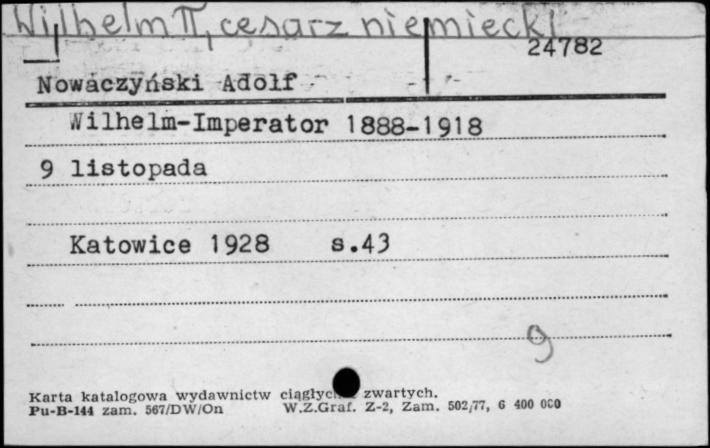 Wilhelm II, cesarz niemiecki
24782
Nowaczyński Adolf
Wilhelm-Imperator 1888-1918
9 listopada
Katowice 1928 s.43
9
Karta katalogowa wydawnictw zwartych.
Pu-B-144 zam. 567/DW/On W.Z.Graf. Z-2, Zam. 502/77, 6 400 000